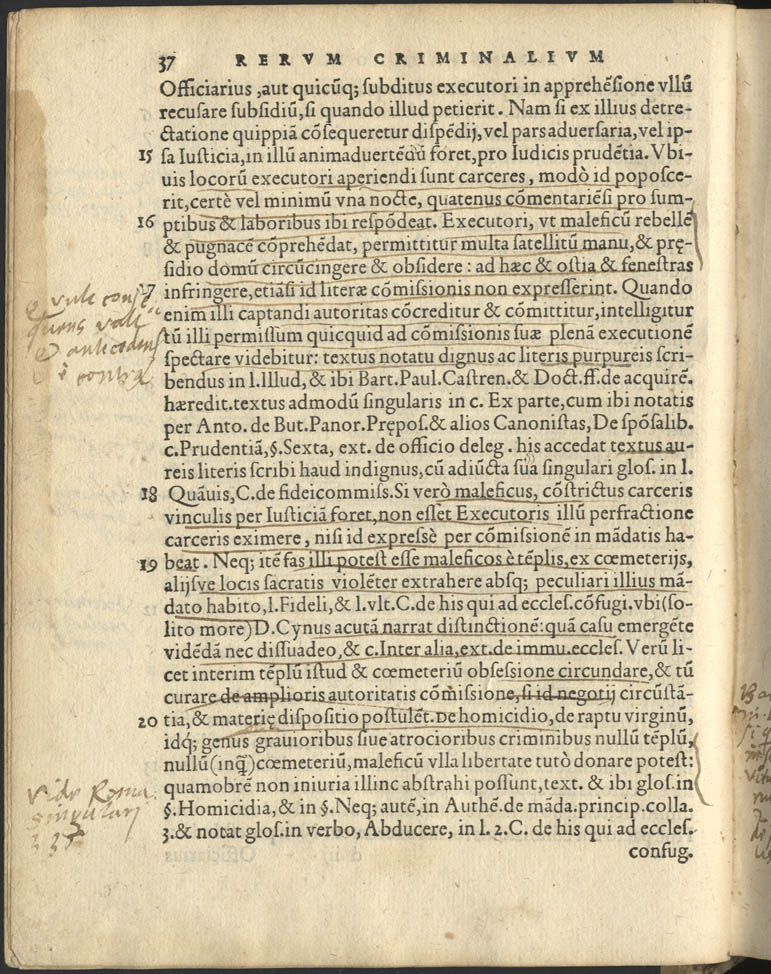 37 RERVM CRIMINALIVM
Officiarius ,aut quicūq; subditus executori in apprehēsione vllū
recusare subsidiū,si quando illud petierit. Nam si ex illius detre-
ctatione quippiā cōsequeretur dispēdij,vel pars aduersaria,vel ip-
15 sa Iusticia,in illū animaduertēdū foret,pro Iudicis prudētia. Vbi-
uis locorū executori aperiendi sunt carceres, modò id poposce-
rit,certè vel minimū vna nocte, quatenus cōmentariēsi pro sum-
16 ptibus & laboribus ibi respōdeat. Executori, vt maleficū rebellē
& pugnacē cōprehēdat, permittitur multa satellitū manu,& prę-
sidio domū circūcingere & obsidere: ad hæc & ostia & fenestras
17 infringere,etiāsi id literæ cōmissionis non expresserint. Quando
enim illi captandi autoritas cōcreditur & cōmittitur,intelligitur
tū illi permissum quicquid ad cōmissionis suæ plenā executionē
spectare videbitur: textus notatu dignus ac literis purpureis scri-
bendus in l.Illud,& ibi Bart.Paul.Castren.& Doct.ff.de acquirē.
hæredit.textus admodū singularis in c. Ex parte,cum ibi notatis
per Anto. de But.Panor.Prępos.& alios Canonistas,De spōsalib.
c.Prudentiā,§.Sexta, ext. de officio deleg. his accedat textus au-
reis literis scribi haud indignus,cū adiūcta sua singulari glos. in l.
18 Quāuis,C.de fideicommiss.Si verò maleficus, cōstrictus carceris
vinculis per Iusticiā foret,non esset Executoris illū perfractione
carceris eximere, nisi id expressè per cōmissionē in mādatis ha-
19 beat. Neq; itē fas illi potest esse maleficos è tēplis,ex cœmeterijs,
alijsve locis sacratis violēter extrahere absq; peculiari illius mā-
dato habito,l.Fideli,& l.vlt.C.de his qui ad eccles.cōfugi.vbi(so-
lito more)D.Cynus acutā narrat distinctionē:quā casu emergēte
vidēdā nec dissuadeo,& c.Inter alia,ext.de immu.eccles. Verū li-
cet interim tēplū istud & cœmeteriū obsessione circundare,& tū
curare de amplioris autoritatis cōmissione,si id negotij circūstā-
20 tia,& materię dispositio postulēt.De homicidio,de raptu virginū,
idq́; genus grauioribus siue atrocioribus criminibus nullū tēplū,
nullū(inq̄)cœmeteriū,maleficū vlla libertate tutò donare potest:
quamobrē non iniuria illinc abstrahi possunt,text. & ibi glos.in
§.Homicidia,& in §.Neq; autē,in Authē.de māda.princip.colla.
3.& notat glos.in verbo, Abducere, in l. 2.C. de his qui ad eccles.
confug.
vide Roma.
singulari
337